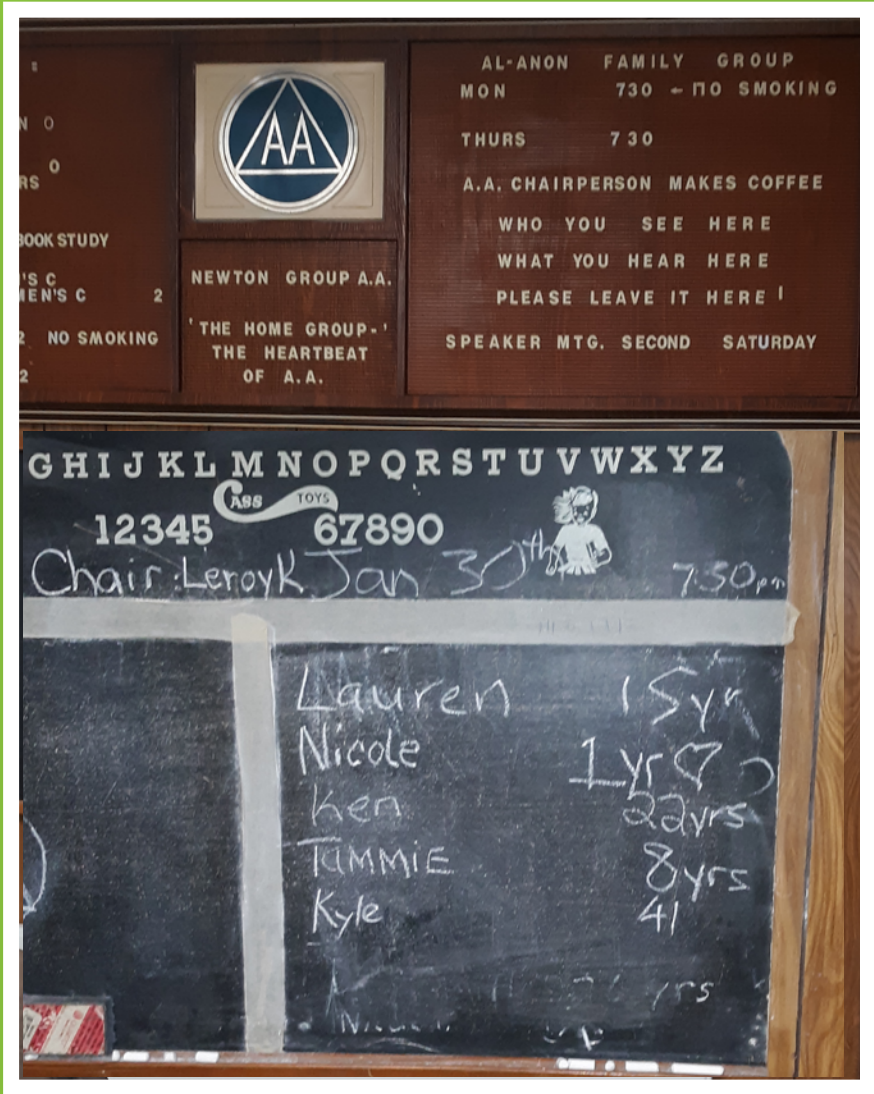 BOOK STUDY
MEN'S C 2
2 NO SMOKING
2
AA
NEWTON GROUP A.A.
'THE HOME GROUP-'
THE HEARTBEAT
OF A.A.
AL-ANON FAMILY GROUP
MON 730 ← NO SMOKING
THURS 730
A.A. CHAIRPERSON MAKES COFFEE
WHO YOU SEE HERE
WHAT YOU HEAR HERE
PLEASE LEAVE IT HERE !
SPEAKER MTG. SECOND SATURDAY
GHIJKLMNOPQRSTUVWXYZ
CASS TOYS
12345 67890
Chair: Leroy K Jan 30th 7:30pm
Lauren 15yr
Nicole 1yr ♡
Ken 22yrs
TAMMIE 8yrs
Kyle 41
yrs